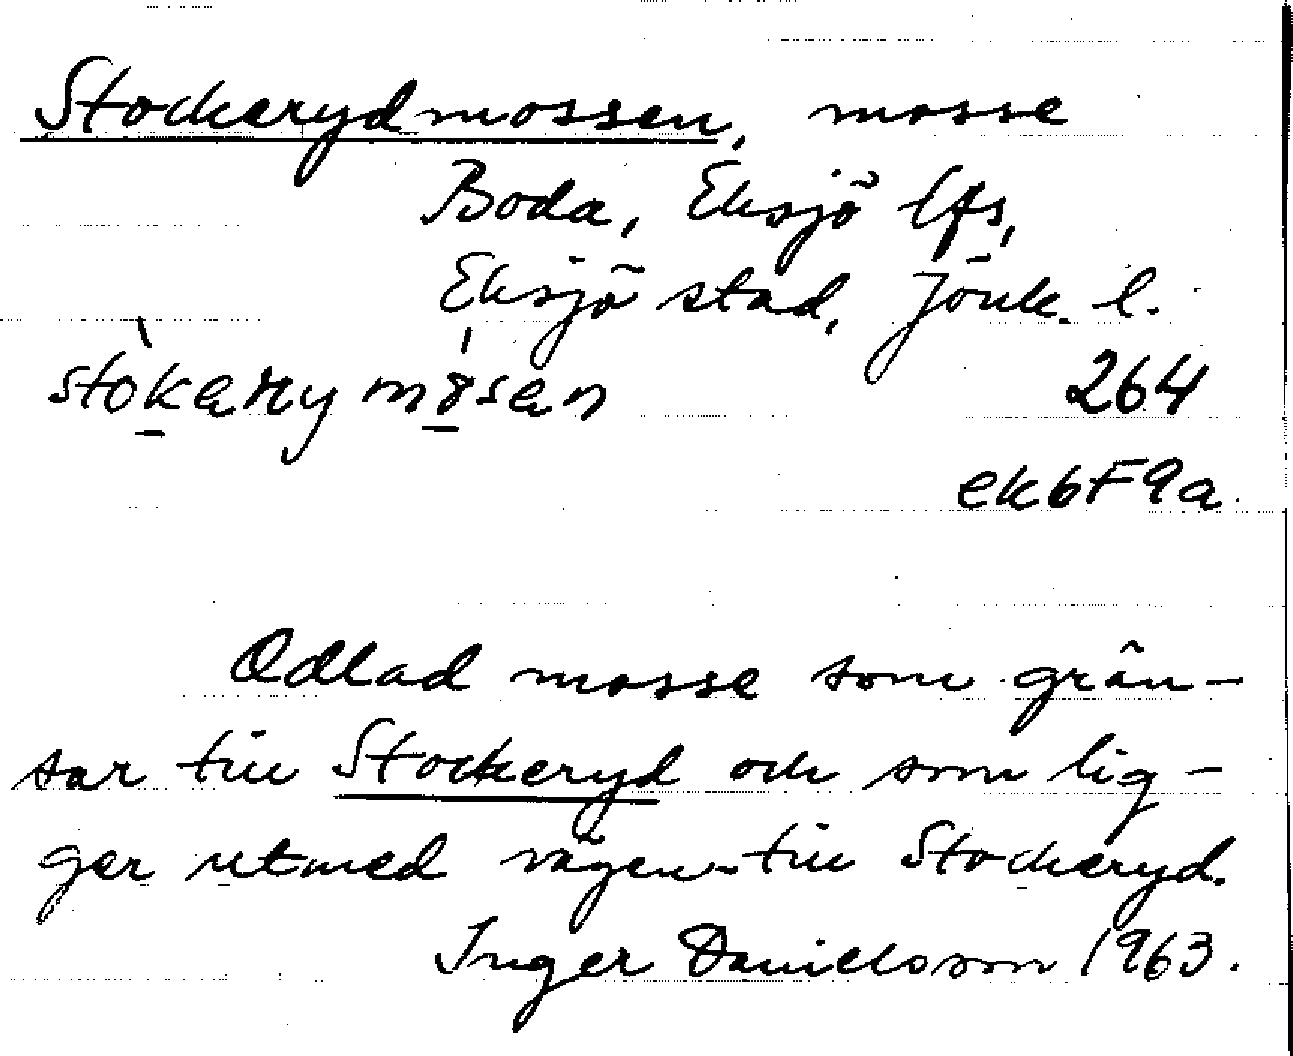 Stockerydmossen, mosse
Boda, Eksjö lfs,
Eksjö stad, Jönk. l.
264
ek6F9a
Odlad mosse som grän-
sar till Stockeryd och som lig-
ger utmed vägen till Stockeryd.
Inger Danielsson 1963.